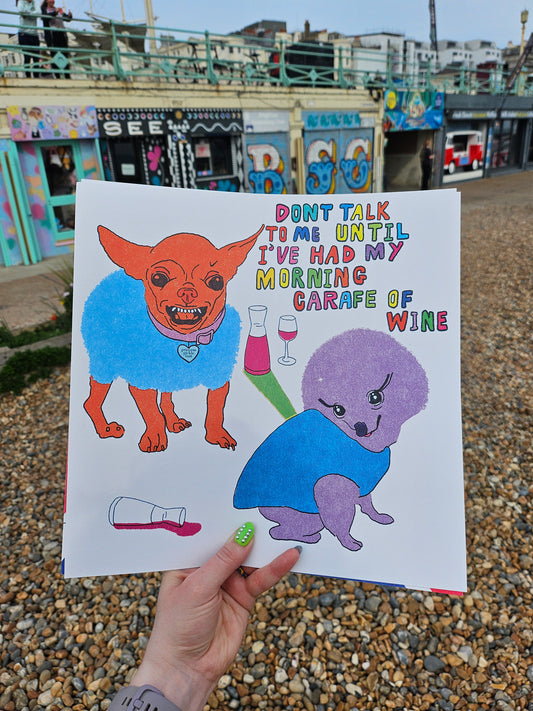 SEE
BSG
DONT TALK
TO ME UNTIL
I'VE HAD MY
MORNING
CARAFE OF
WINE